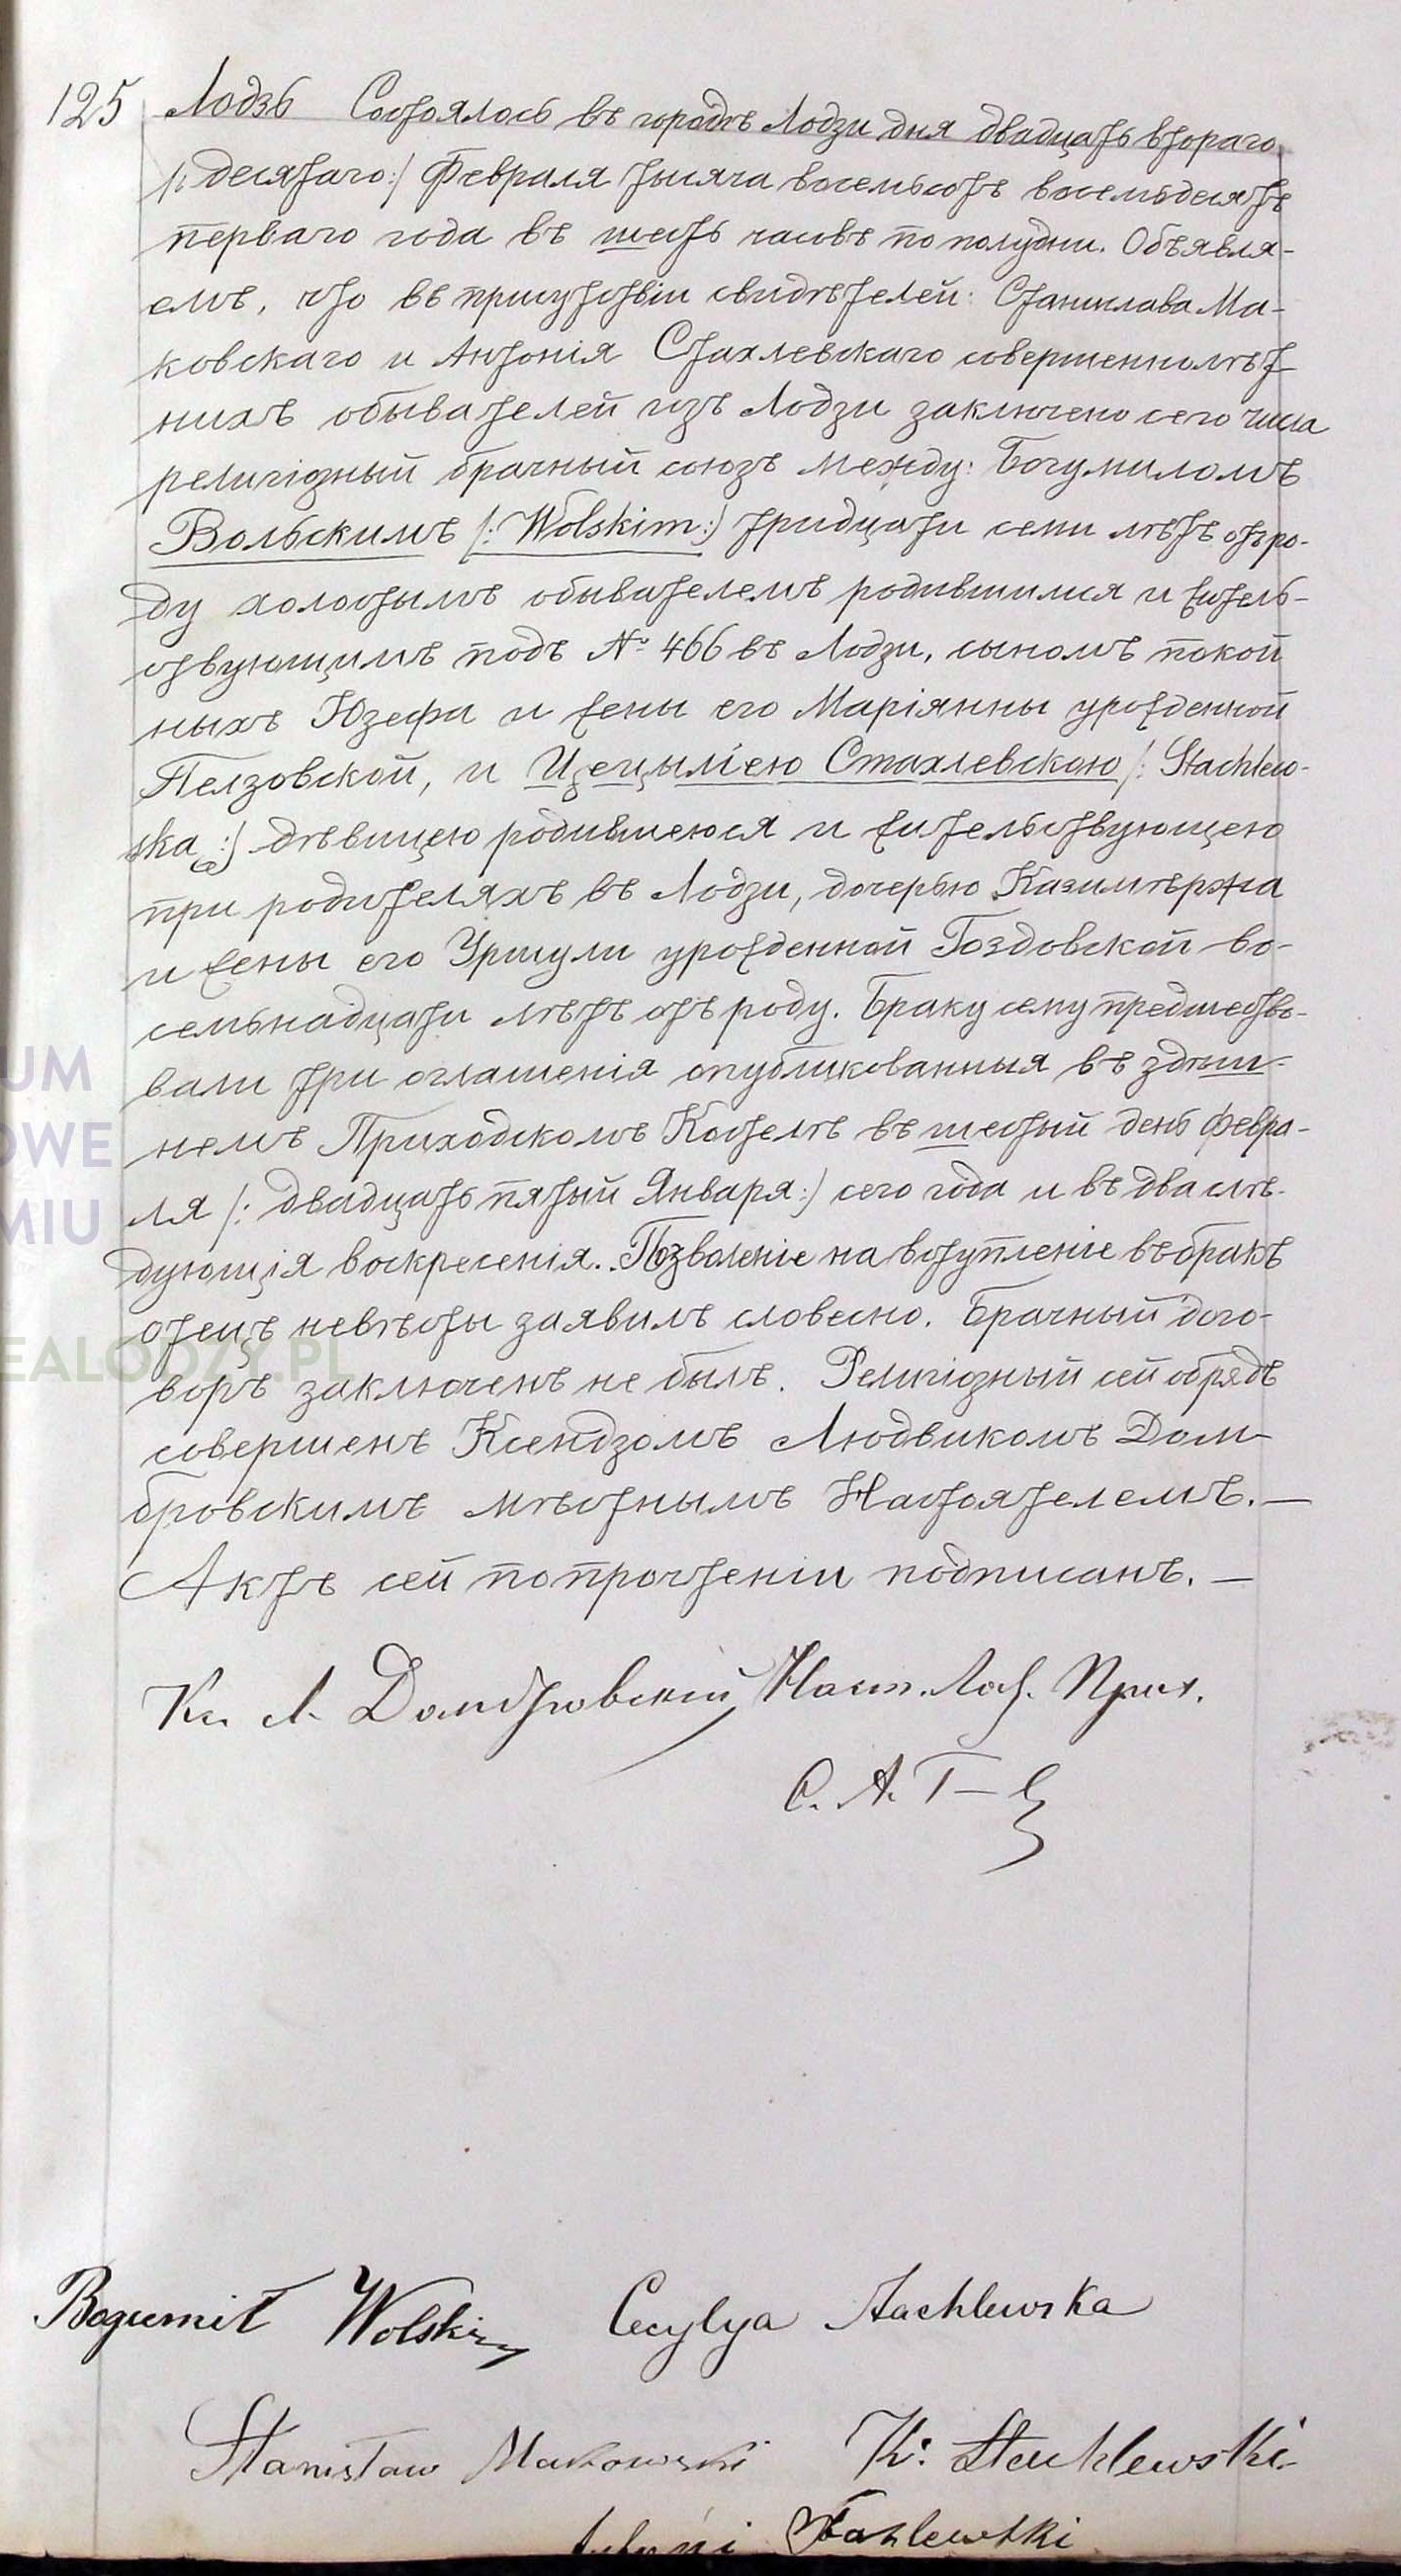 125 Лодзь Состоялось въ городѣ Лодзи дня двадцать втораго
/: десятаго :/ Февраля тысяча восемьсотъ восемьдесятъ
перваго года въ шесть часовъ по полудни. Объявля-
емъ, что въ присутствіи свидѣтелей: Станислава Ма-
ковскаго и Антонія Стахлевскаго совершеннолѣт
нихъ обывателей изъ Лодзи заключено сего числа
религіозный брачный союзъ между: Богумиломъ
Вольскимъ /: Wolskim :/ тридцати семи лѣтъ отъ ро-
ду холостымъ обывателемъ родившимся и житель-
ствующимъ подъ № 466 въ Лодзи, сыномъ покой
ныхъ Юзефа и жены его Маріянны урожденной
Пелзовской, и Цецыліею Стахлевскою /: Stachlew-
ska :/ дѣвицею родившеюся и жительствующею
при родителяхъ въ Лодзи, дочерью Казимѣржа
и жены его Уршули урожденной Гоздовской во-
семьнадцати лѣтъ отъ роду. Браку сему предшество-
вали три оглашенія опубликованныя въ здѣш-
немъ Приходскомъ Костелѣ въ шестый день Февра-
ля /: двадцать пятый Января :/ сего года и въ два слѣ-
дующія воскресенія. Позволеніе на вступленіе въ бракъ
отецъ невѣсты заявилъ словесно. Брачный дого-
воръ заключенъ не былъ. Религіозный сей обрядъ
совершенъ Ксендзомъ Людвикомъ Дом-
бровскимъ мѣстнымъ Настоятелемъ. —
Актъ сей по прочтеніи подписанъ. —
Кс. Л. Домбровскій Наст. Лод. Прих.
С. А. Г—
Bogumił Wolski Cecylya Stachlewska
Stanisław Makowski K. Stachlewski
Antoni Stachlewski
UM
OWE
MIU
EALODZY.PL